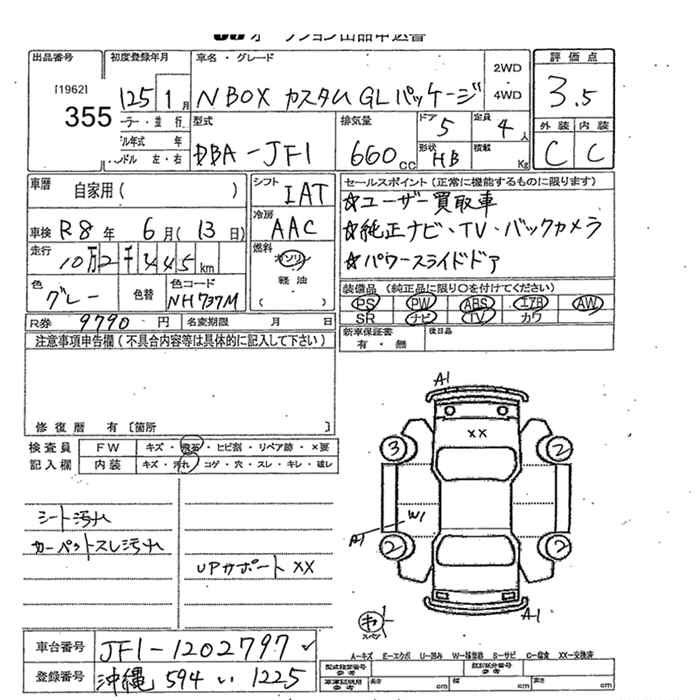 オークション出品申込書
出品番号 初度登録年月 車名・グレード 評価点
[1962] 355
125 1月 N BOX カスタム GLパッケージ 2WD・4WD 3.5
年式 年
ハンドル 左・右
型式 DBA-JF1 排気量 660cc ドア 5 定員 4人
形状 HB 積載 Kg
外装 内装
C C
車歴 自家用( )
シフト IAT
車検 R8年 6月(13日)
冷房 AAC
走行 10万2千445km
燃料 ガソリン・軽油 ( )
色 グレー 色替 色コード NH737M
R券 9790円 名変期限 月 日
セールスポイント(正常に機能するものに限ります)
☆ユーザー買取車
☆純正ナビ、TV、バックカメラ
☆パワースライドドア
装備品(純正品に限り○を付けてください)
PS PW ABS エアB AW
SR ナビ TV カワ
新車保証書 有・無 後日品
注意事項申告欄(不具合内容等は具体的に記入して下さい)
修復歴 有[箇所 ]
検査員記入欄
FW キズ・飛石・ヒビ割・リペア跡・×要
内装 キズ・汚れ・コゲ・穴・スレ・キレ・破レ
シート汚れ
カーペットスレ汚れ
UPサポートXX
A1
XX
3 2
W1
A1
2 2
A1
キ
スペア
車台番号 JF1-1202797
登録番号 沖縄 594 い 1225
A-キズ E-エクボ U-凹み W-補修跡 S-サビ C-腐食 XX-交換済
型式指定番号 参考 類別区分番号 参考
長さ cm 幅 cm 高さ cm